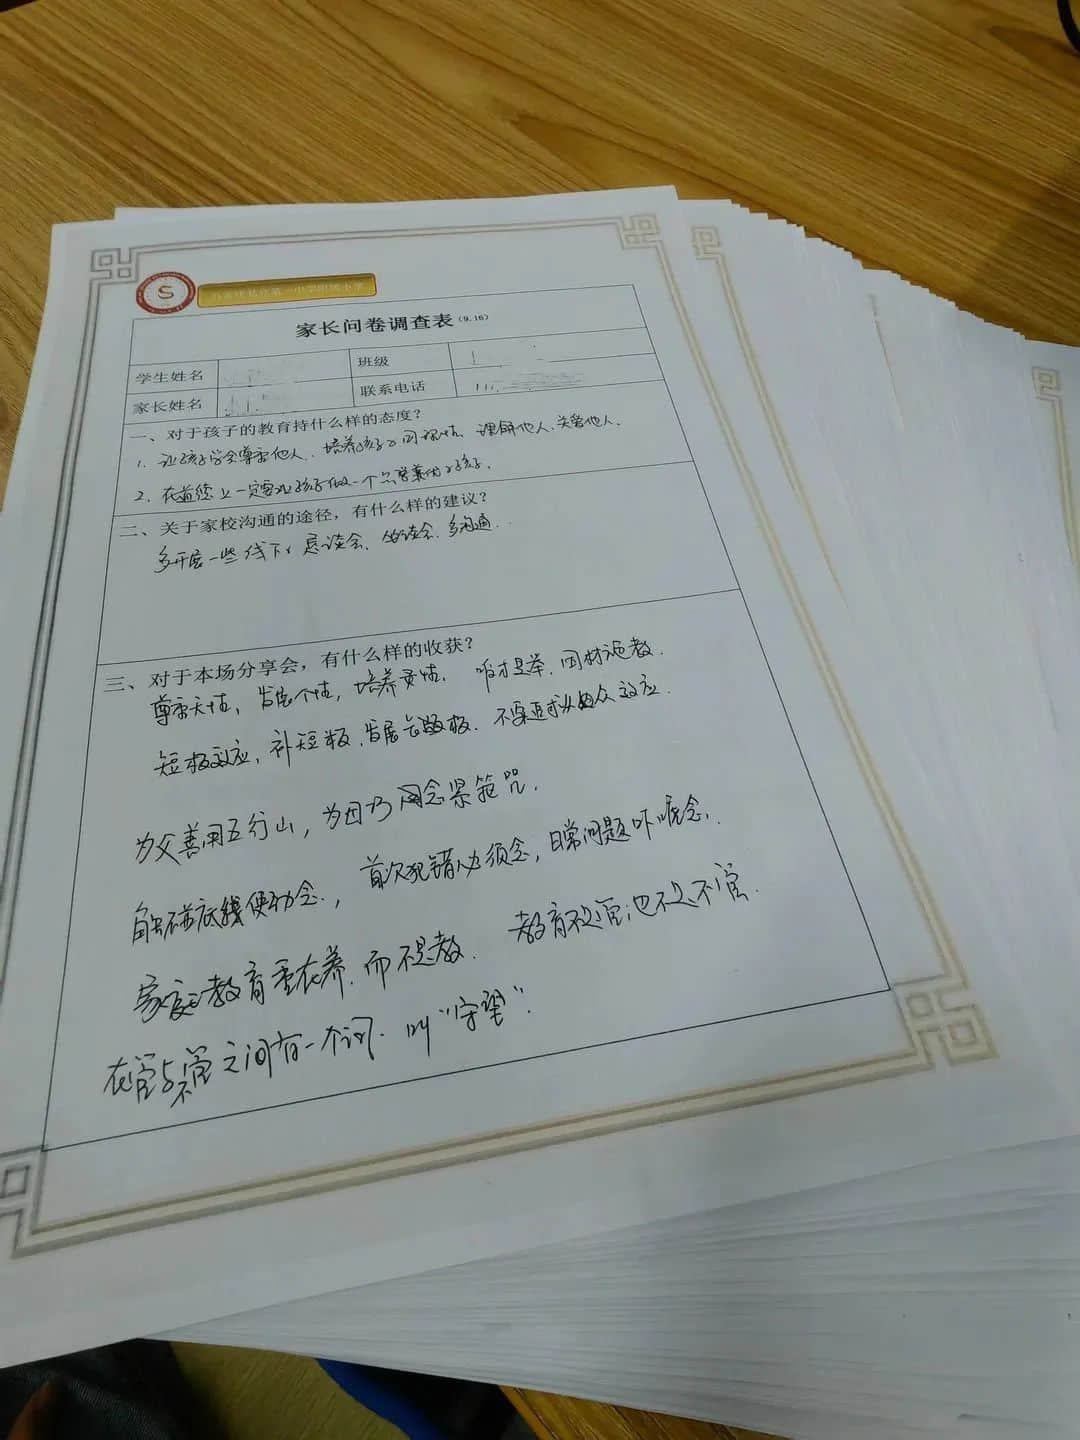 S
家长问卷调查表(9.16)
学生姓名 班级
家长姓名 联系电话
一、对于孩子的教育持什么样的态度？
1. 让孩子学会尊重他人、培养孩子的同理心、理解他人、关爱他人.
2. 在道德上一定要让孩子做一个 善良的孩子.
二、关于家校沟通的途径，有什么样的建议？
多开展一些线下 恳谈会、 多沟通.
三、对于本场分享会，有什么样的收获？
尊重天性，发展个性，培养 性. 唯才是举. 因材施教.
短板效应，补短板，发展长板. 不要追求从众效应.
为父善用五行山，为 念紧箍咒.
触碰底线便动念.，首次犯错必须念，日常问题 念.
家庭教育重在养.而不是教. 教育不是管；也不是不管.
在管与不管之间有一个词.叫“守望”.